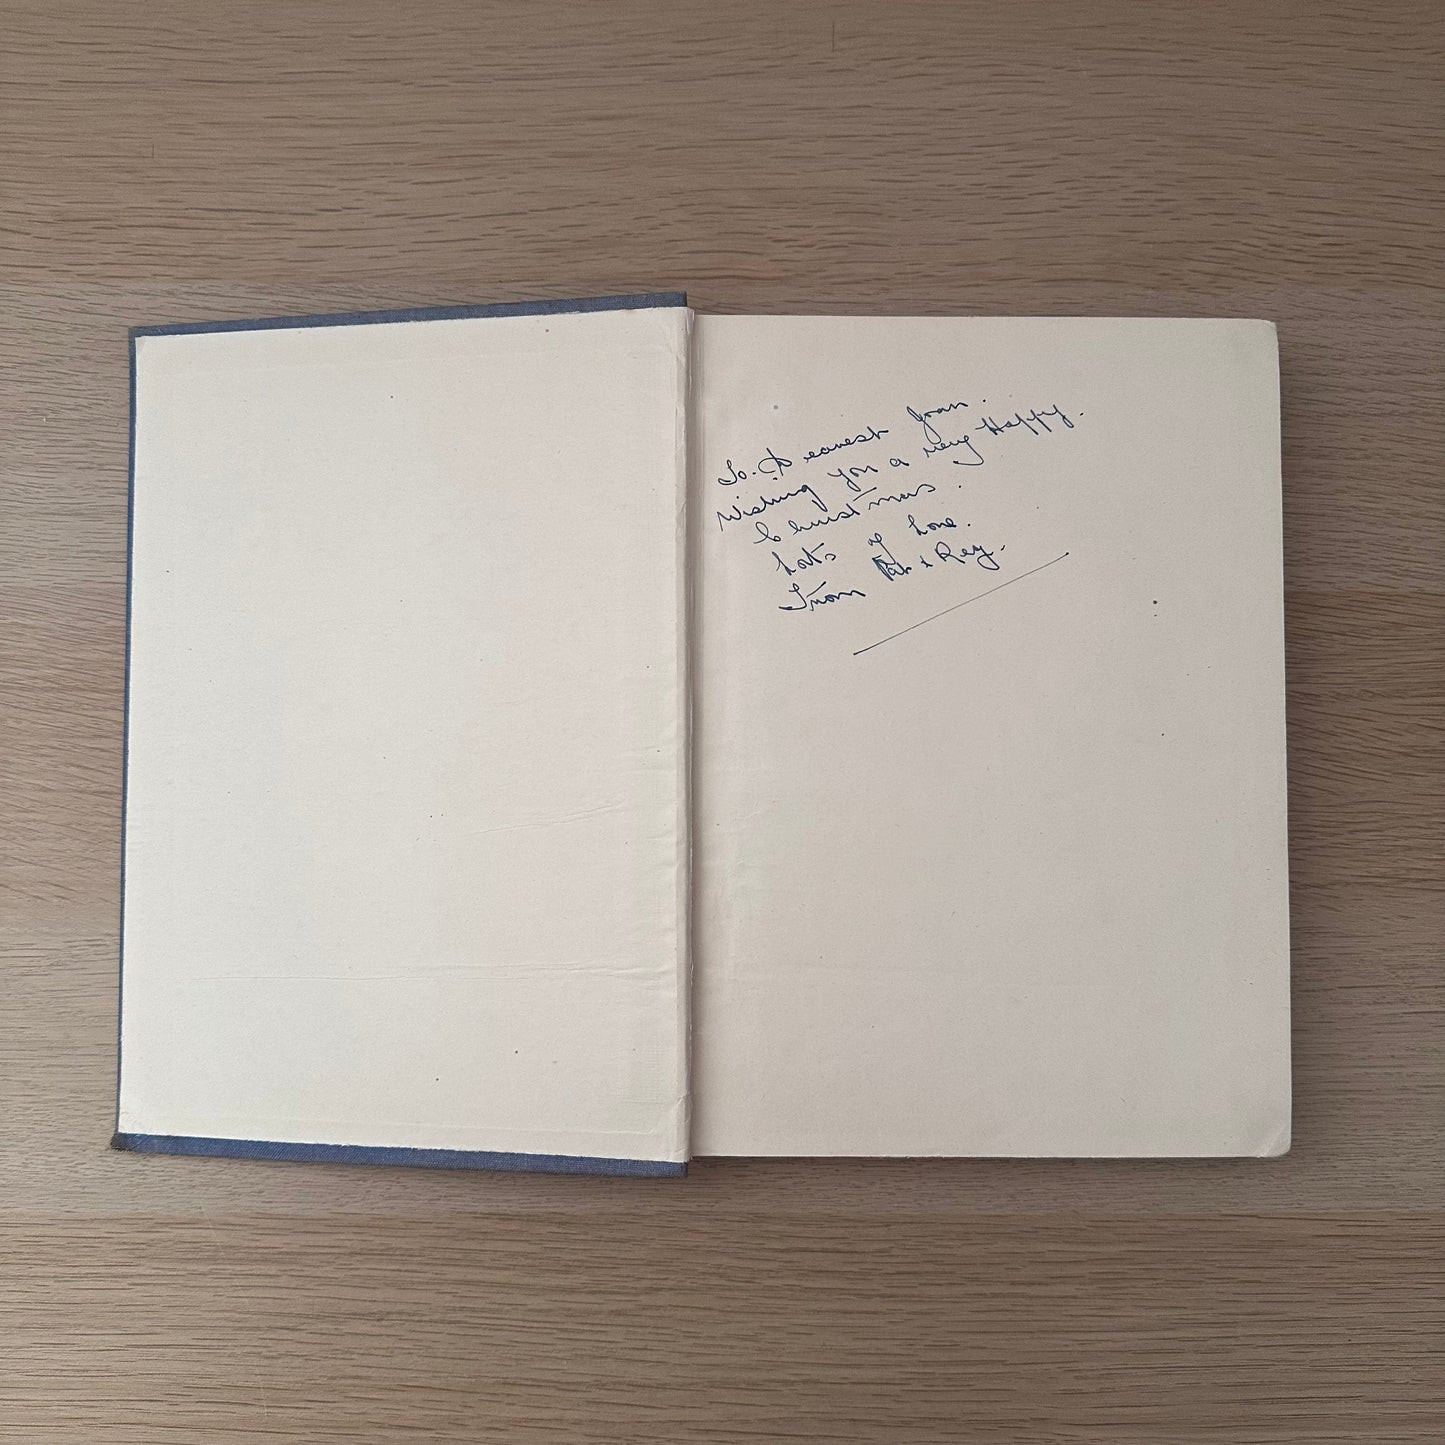 To. Dearest Joan.
Wishing you a very Happy.
Christmas.
Lots of Love.
From Pat & Reg.